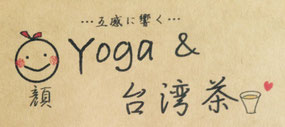 …五感に響く…
顔 Yoga &
台湾茶